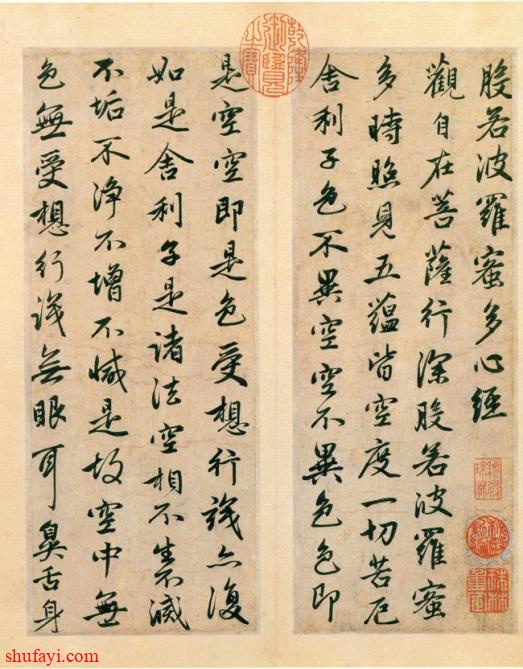 般若波羅蜜多心經
觀自在菩薩行深般若波羅蜜
多時照見五蘊皆空度一切苦厄
舍利子色不異空空不異色色即
是空空即是色受想行識亦復
如是舍利子是諸法空相不生不滅
不垢不淨不增不減是故空中無
色無受想行識無眼耳鼻舌身
乾隆御覽之寶
shufayi.com